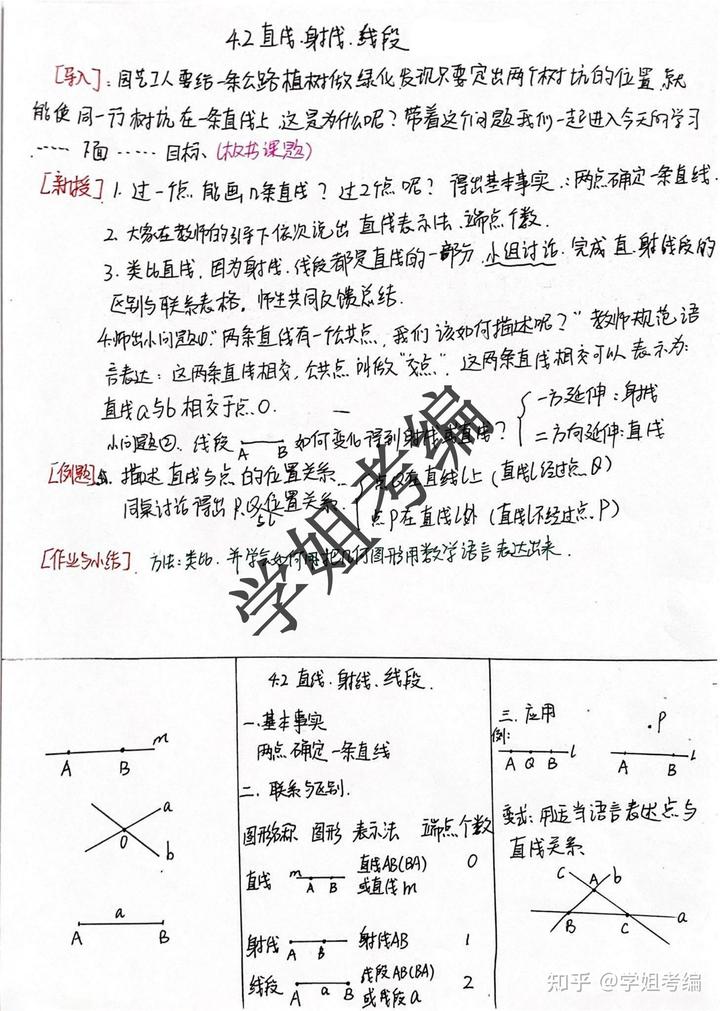 4.2 直线.射线.线段
[导入]: 园艺工人要给一条公路植树做绿化,发现只要定出两个树坑的位置,就
能使同一行树坑在一条直线上,这是为什么呢?带着这个问题我们一起进入今天的学习
…… 下面 …… 目标、(板书课题)
[新授] 1. 过一个点能画几条直线?过2个点呢?得出基本事实:两点确定一条直线.
2. 大家在教师的引导下依次说出直线表示法、端点个数.
3. 类比直线,因为射线.线段都是直线的一部分,小组讨论.完成直.射线段的
区别与联系表格,师生共同反馈总结.
4.师出小问题①."两条直线有一个公共点,我们该如何描述呢?"教师规范语
言表达:这两条直线相交,公共点叫做"交点",这两条直线相交可以表示为:
直线a与b相交于点O.
小问题②. 线段 A B 如何变化得到射线或直线? 一方延伸:射线
二方向延伸:直线
[例题] 描述直线与点的位置关系. 点Q在直线l上(直线l经过点Q)
同桌讨论得出P.Q位置关系. 点P在直线l外(直线l不经过点P)
[作业与小结] 方法:类比.并学会如何用把几何图形用数学语言表达出来.
学姐考编
A B m
a
O
b
a
A B
4.2 直线.射线、线段.
一.基本事实
两点确定一条直线
二. 联系与区别.
图形名称 图形 表示法 端点个数
直线 m A B 直线AB(BA) 0
或直线m
射线 A B 射线AB 1
线段 A a B 线段AB(BA) 2
或线段a
三. 应用
例: .P
A Q B l A B l
变式:用适当语言表达点与
直线关系
c A b
B C a
知乎 @学姐考编